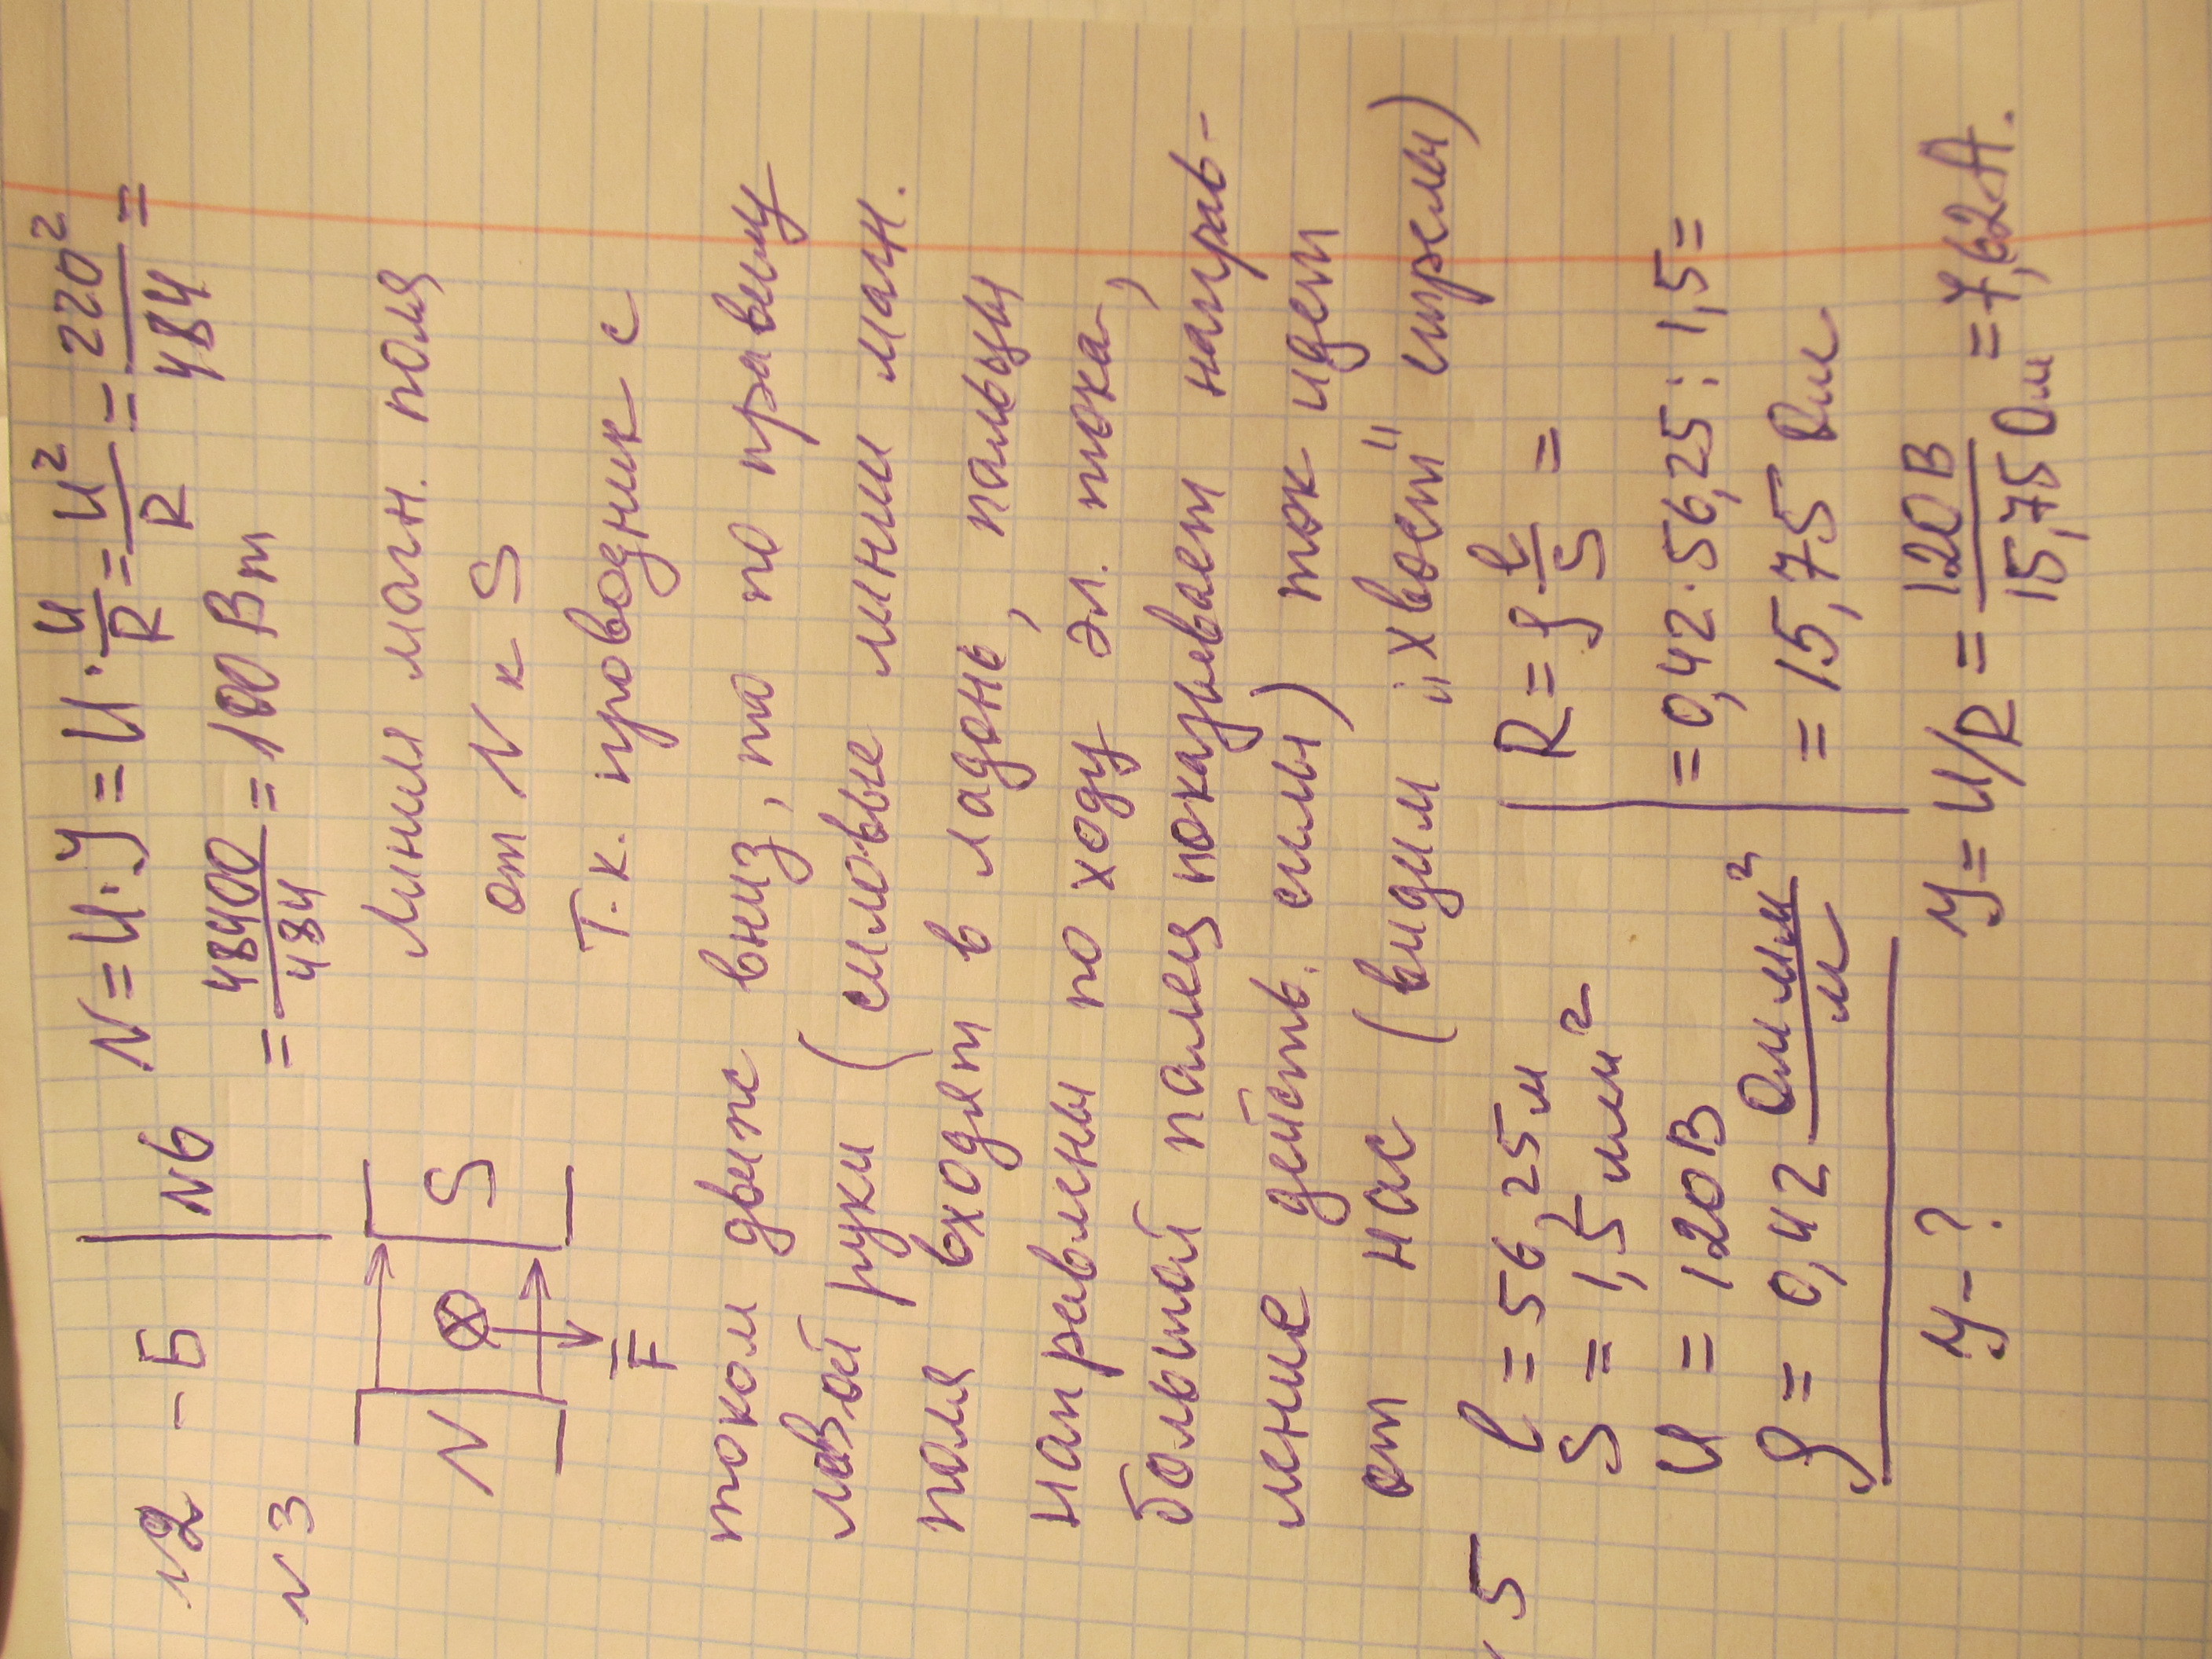 N2 – Б
N6 N = U·У = U·U/R = U²/R = 220²/484 =
= 48400/484 = 100 Вт
N3
N ⊗ S
F
Линии магн. поля
от N к S
Т.к. проводник с
током движ вниз, то по правилу
левой руки (силовые линии магн.
поля входят в ладонь, пальцы
направлены по ходу эл. тока,
большой палец показывает направ-
ление действ. силы) ток идет
от нас (видим "хвост" стрелы)
5 l = 56,25 м
S = 1,5 мм²
U = 120В
ρ = 0,42 Ом мм²/м
У – ?
R = ρ l/S =
= 0,42·56,25:1,5=
= 15,75 Ом
У = U/R = 120В/15,75 Ом = 7,62А.